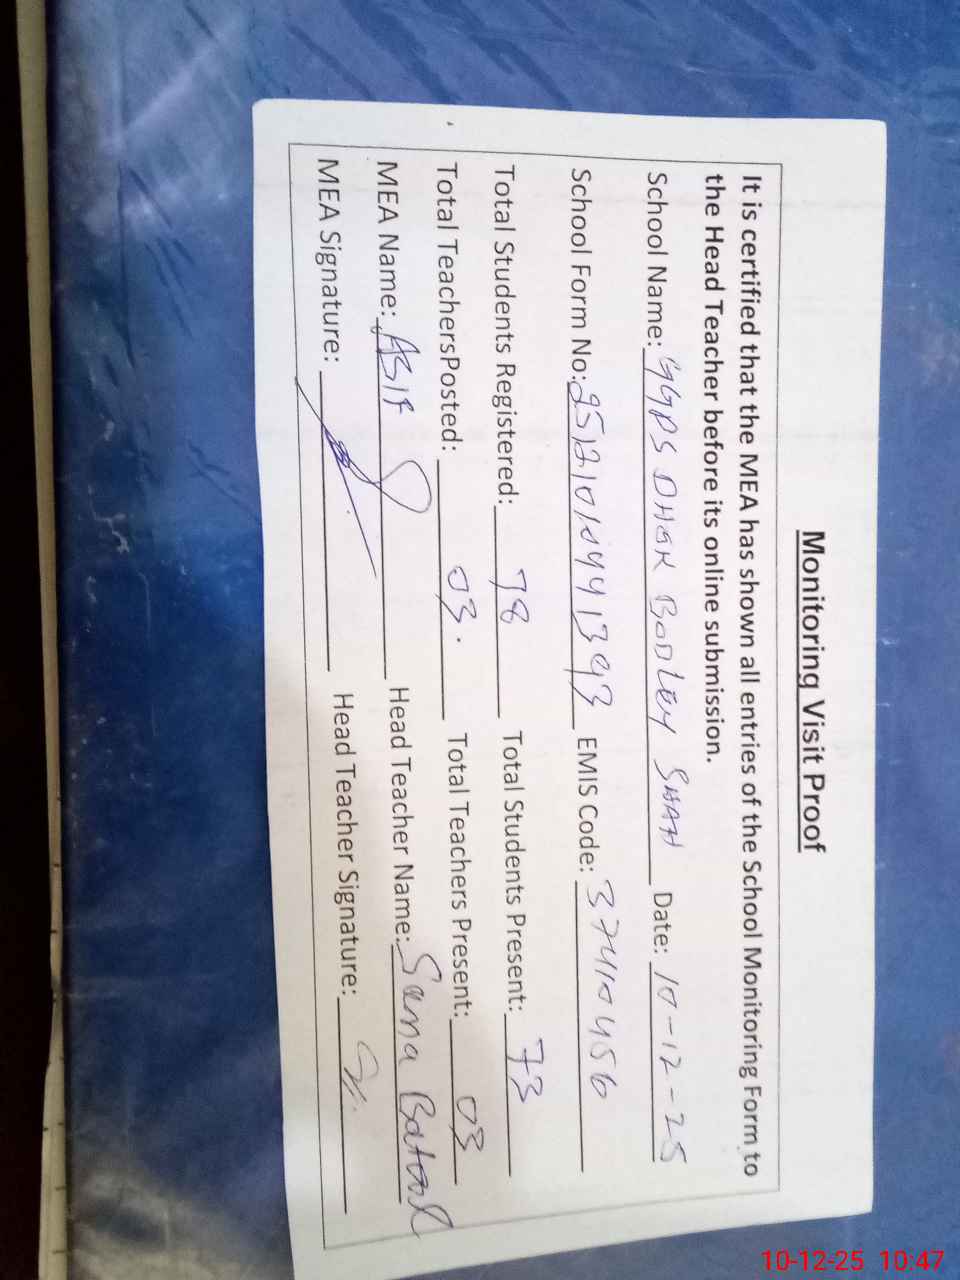 Monitoring Visit Proof
It is certified that the MEA has shown all entries of the School Monitoring Form to
the Head Teacher before its online submission.
School Name: GGPS DHOK BODLEY SHAH Date: 10-12-25
School Form No: EMIS Code: 37410456
Total Students Registered: 78 Total Students Present: 73
Total TeachersPosted: 03. Total Teachers Present: 03
MEA Name: ASIF Head Teacher Name: Sama Batool
MEA Signature: Head Teacher Signature:
10-12-25 10:47